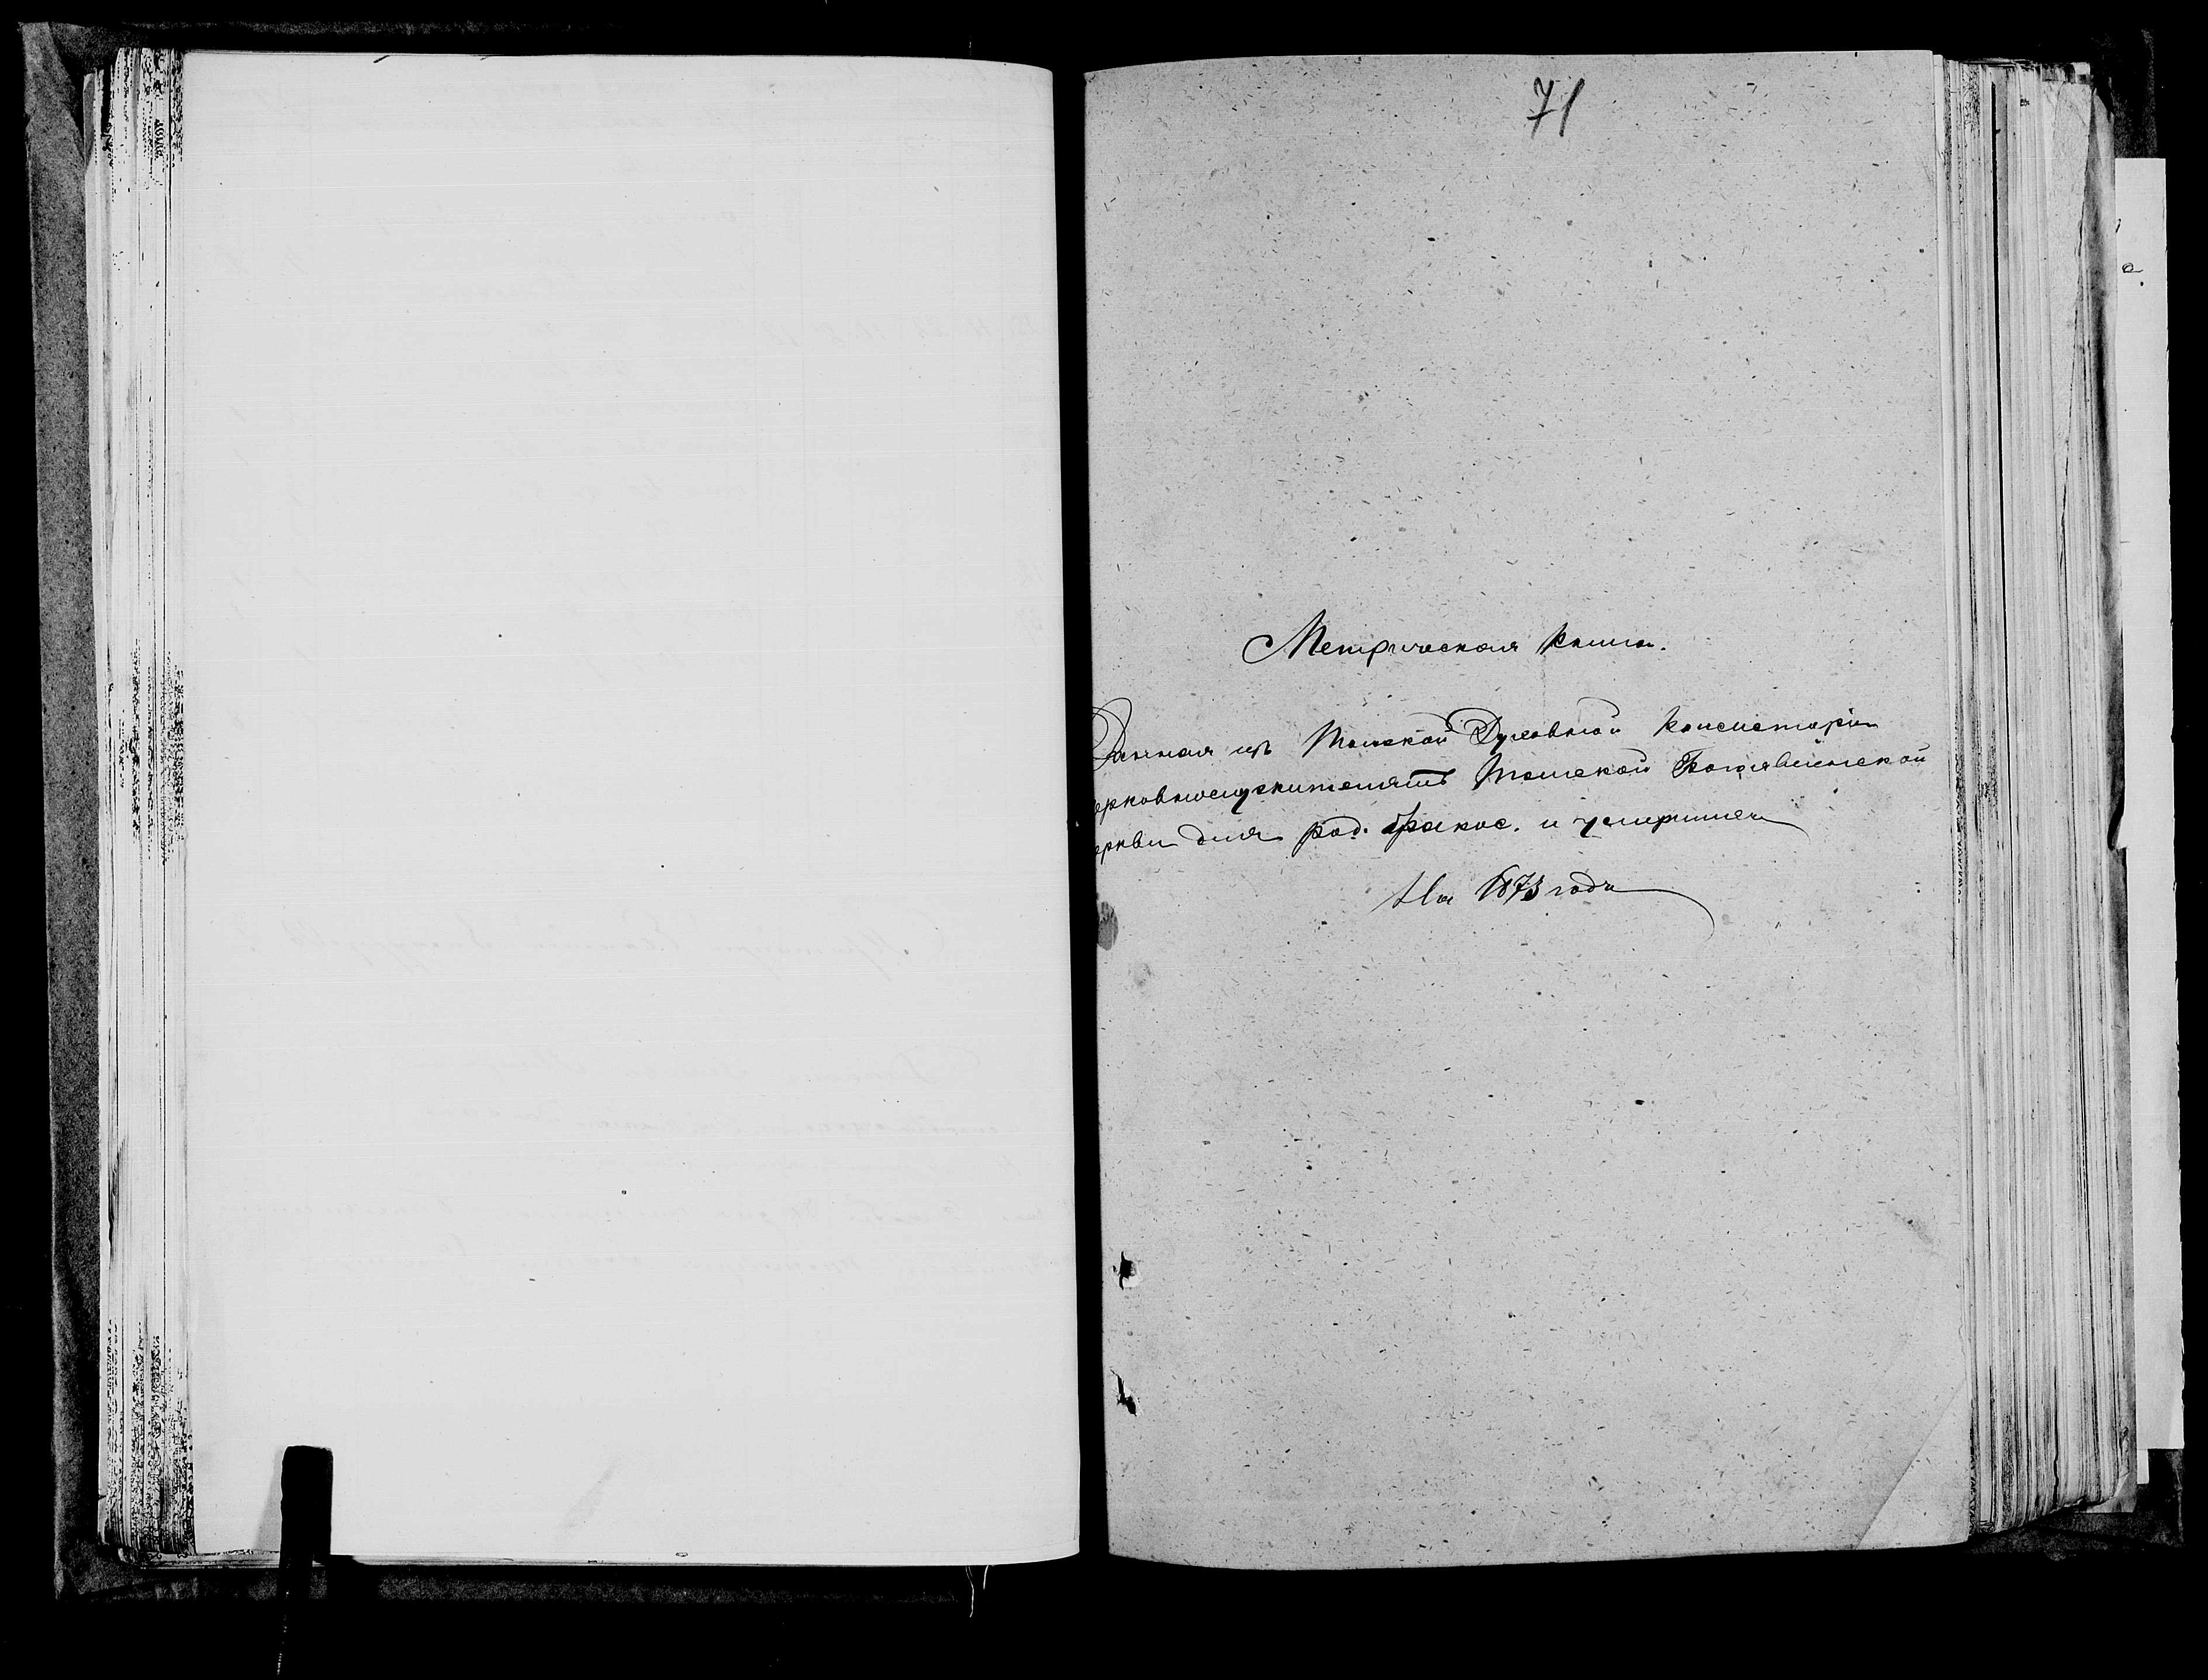 71
Метрическая книга.
Данная изъ Томской Духовной Консисторіи
ерковнослужителямъ Томской Богоявленской
еркви для род. бракос. и умершихъ
На 1873 годъ